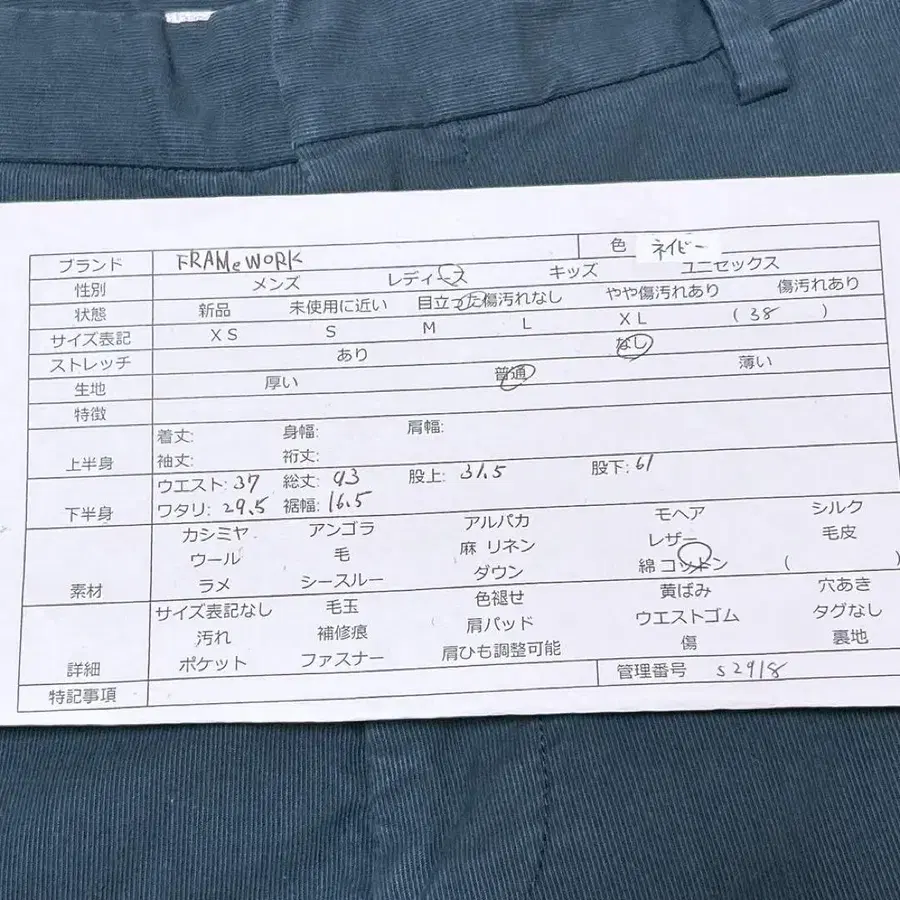 ブランド FRAMeWORK 色 ネイビー
性別 メンズ レディース キッズ ユニセックス
状態 新品 未使用に近い 目立った傷汚れなし やや傷汚れあり 傷汚れあり
サイズ表記 XS S M L XL (38 )
ストレッチ あり なし
生地 厚い 普通 薄い
特徴
上半身 着丈: 身幅: 肩幅:
袖丈: 裄丈:
下半身 ウエスト: 37 総丈: 93 股上: 31.5 股下: 61
ワタリ: 29.5 裾幅: 16.5
素材 カシミヤ アンゴラ アルパカ モヘア シルク
ウール 毛 麻 リネン レザー 毛皮
ラメ シースルー ダウン 綿 コットン (
詳細 サイズ表記なし 毛玉 色褪せ 黄ばみ 穴あき
汚れ 補修痕 肩パッド ウエストゴム タグなし
ポケット ファスナー 肩ひも調整可能 傷 裏地
特記事項 管理番号 s2918